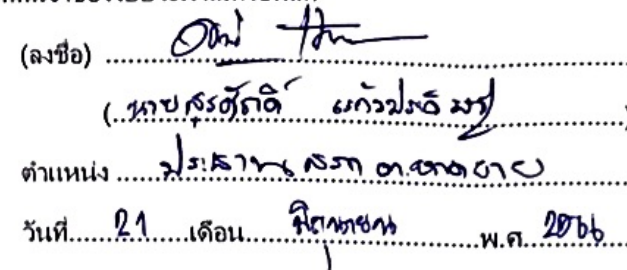 (ลงชื่อ)
(นายสุรศักดิ์ แก้วประดิษฐ์)
ตำแหน่ง ประธานสภา ต.หาดยาย
วันที่ 21 เดือน มิถุนายน พ.ศ. 2566